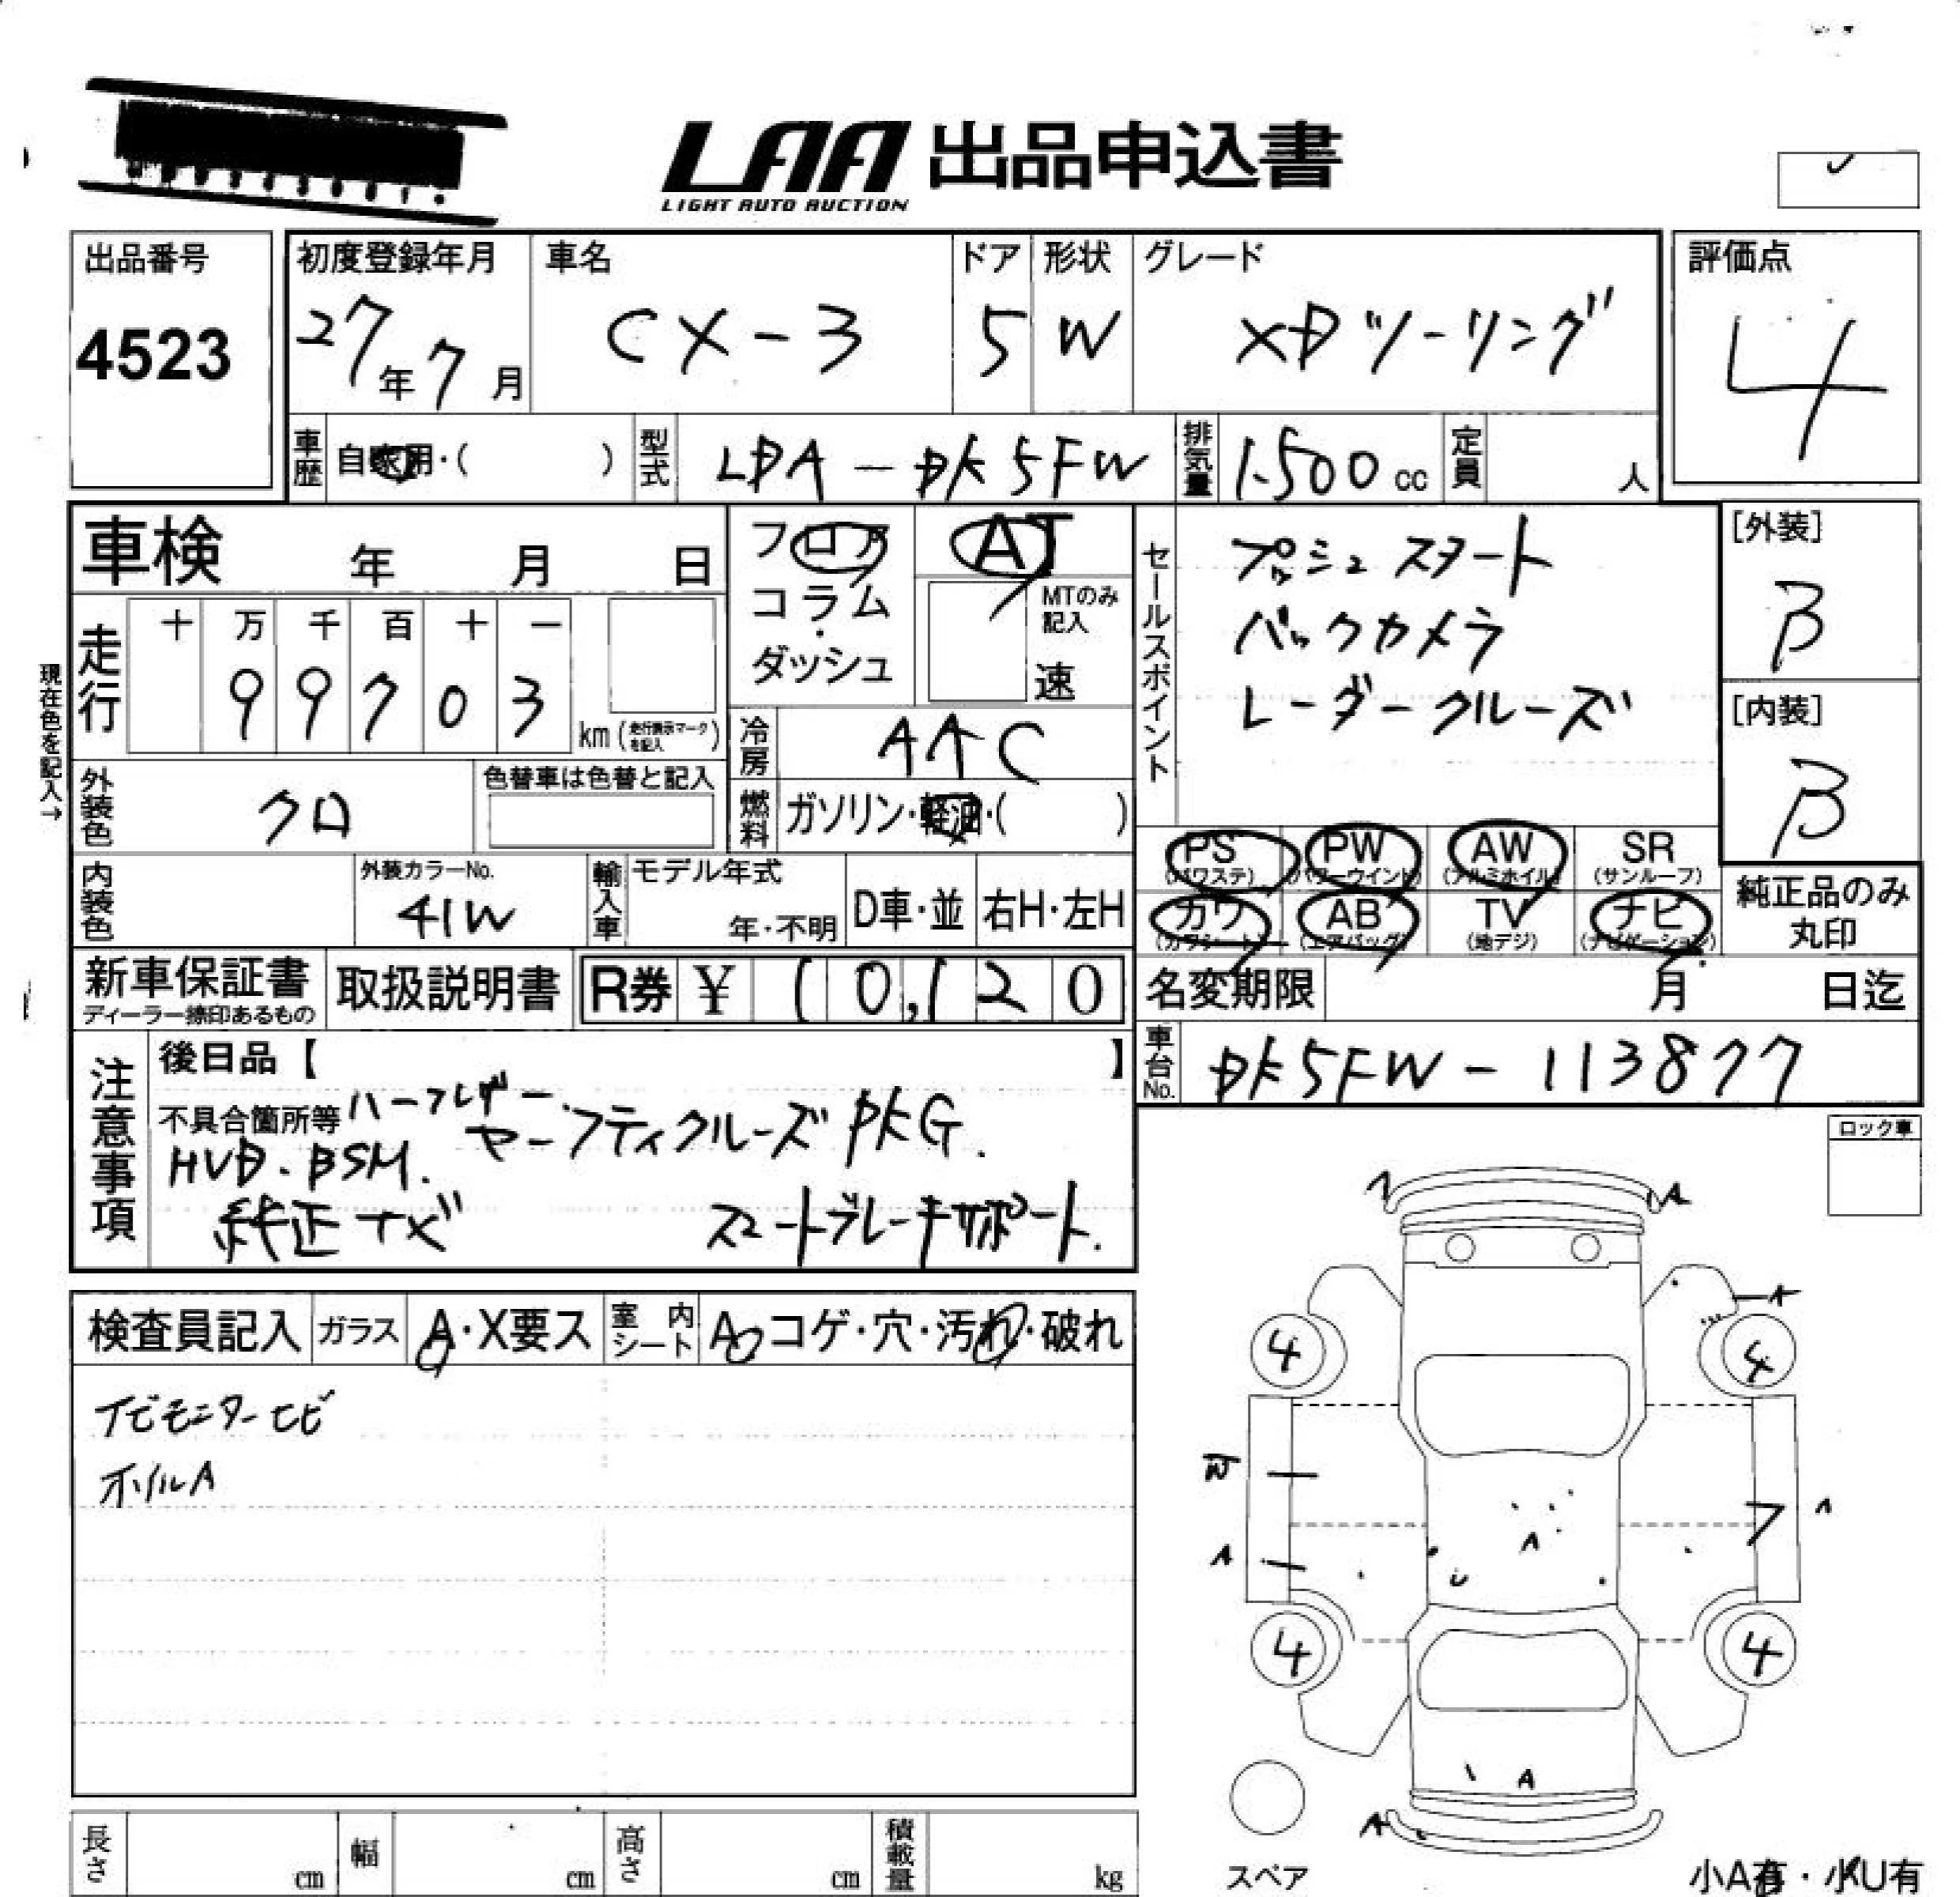 LAA 出品申込書
LIGHT AUTO AUCTION
出品番号
4523
初度登録年月
27年7月
車名
CX-3
ドア
5
形状
W
グレード
XDツーリング
評価点
4
車歴
自家用・( )
型式
LDA-DK5FW
排気量
1500cc
定員
人
車検 年 月 日
フロア
コラム
・
ダッシュ
AT
MTのみ
記入
速
セールスポイント
プッシュスタート
バックカメラ
レーダークルーズ
[外装]
B
[内装]
B
現在色を記入→
走行
十 万 千 百 十 一
9 9 7 0 3
km(走行表示マークを記入)
冷房
AAC
外装色
クロ
色替車は色替と記入
燃料
ガソリン・軽油・( )
PS
(パワステ)
PW
(パワーウインド)
AW
(アルミホイル)
SR
(サンルーフ)
カワ
(カワシート)
AB
(エアバッグ)
TV
(地デジ)
ナビ
(ナビゲーション)
純正品のみ
丸印
内装色
外装カラーNo.
41W
輸入車
モデル年式
年・不明
D車・並
右H・左H
新車保証書
ディーラー捺印あるもの
取扱説明書
R券 ¥ 10,120
名変期限 月 日迄
車台No.
DK5FW-113877
注意事項
後日品【 】
不具合箇所等
ハーフレザー.
セーフティクルーズPKG.
HUD・BSM.
純正ナビ
スマートブレーキサポート.
ロック車
検査員記入
ガラス
A・X要ス
室内シート
A・コゲ・穴・汚れ・破れ
ナビモニターヒビ
ホイルA
A
A
4
4
W
A
A
A
U
4
4
A
A
スペア
小A有・小U有
長さ cm
幅 cm
高さ cm
積載量 kg